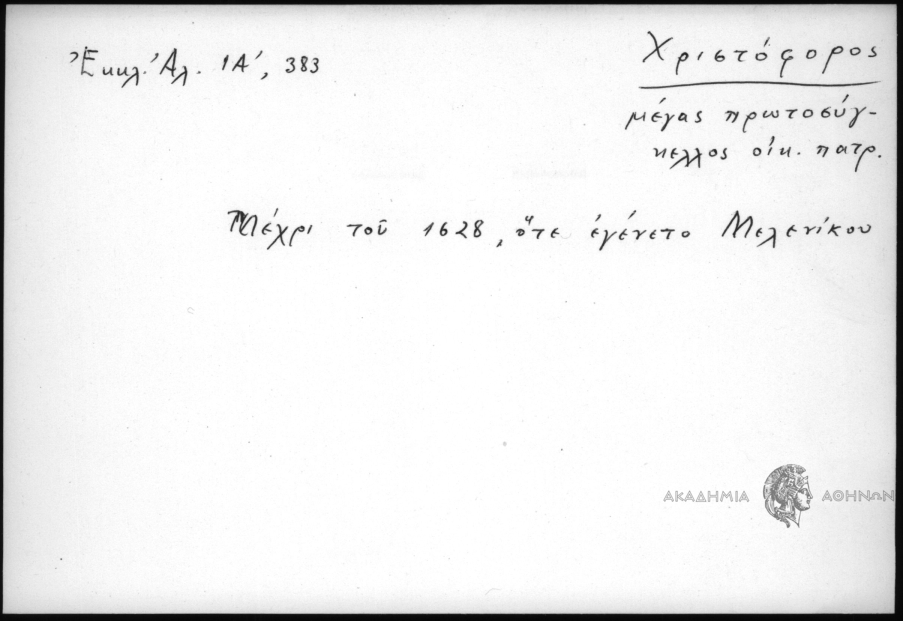 Ἐκκλ. Ἀλ. ΙΑ', 383
Χριστόφορος
μέγας πρωτοσύγ-
κελλος οἰκ. πατρ.
Μέχρι τοῦ 1628, ὅτε ἐγένετο Μελενίκου
ΑΚΑΔΗΜΙΑ ΑΘΗΝΩΝ